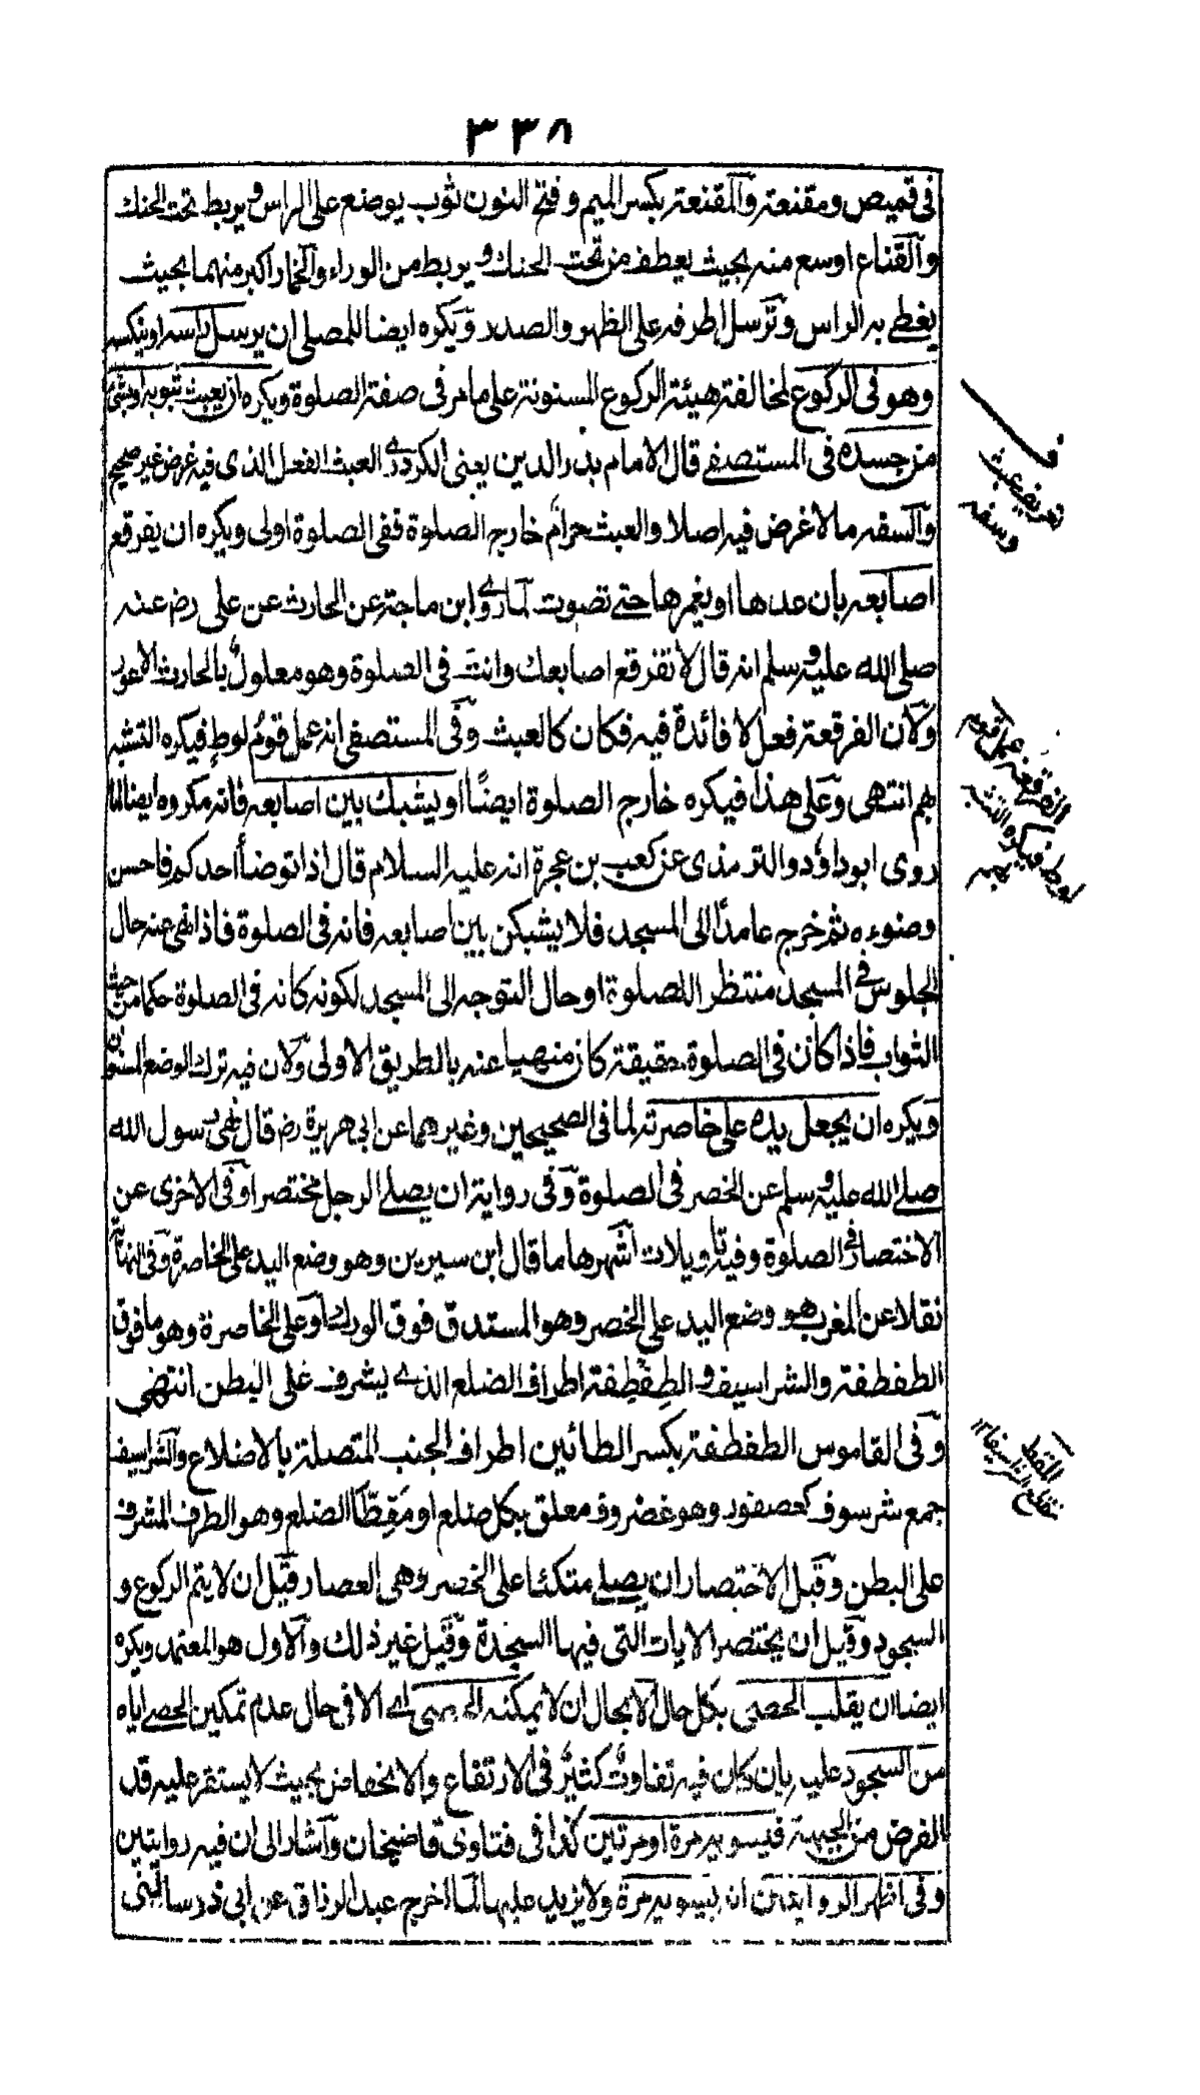 ٣٣٨
في قميص ومقنعة والمقنعة بكسر الميم وفتح النون ثوب يوضع على الراس ويربط تحت الحنك
والقناع اوسع منه بحيث يعطف من تحت الحنك ويربط من الوراء والخمار اكبر منهما بحيث
يغطى به الراس وترسل اطرفه على الظهر والصدر ويكره ايضا للمصلى ان يرسل راسه او ينكسه
وهو فى الركوع لمخالفة هيئة الركوع المسنونة على ما مر فى صفة الصلوة ويكره ان يعبث بثوبه او بشئ
من جسده فى المستصفى قال الامام بدر الدين يعنى الكردرى العبث الفعل الذى فيه غرض غير صحيح
والسفه مالا غرض فيه اصلا والعبث حرام خارج الصلوة ففى الصلوة اولى ويكره ان يفرقع
اصابعه بان عدها او يغمزها حتى تصوت لما روى ابن ماجة عن الحارث عن على رض عنه
صلى الله عليه وسلم انه قال لا تفرقع اصابعك وانت فى الصلوة وهو معلول بالحارث الاعور
ولان الفرقعة فعل لا فائدة فيه فكان كالعبث وفى المستصفى انه عمل قوم لوط فيكره التشبه
بهم انتهى وعلى هذا فيكره خارج الصلوة ايضًا او يشبك بين اصابعه فانه مكروه ايضا لما
روى ابو داؤد والترمذى عن كعب بن عجرة انه عليه السلام قال اذا توضأ احدكم فاحسن
وضوءه ثم خرج عامدًا الى المسجد فلا يشبكن بين اصابعه فانه فى الصلوة فاذا نهى عنه حال
الجلوس فى المسجد منتظر اللصلوة او حال التوجه الى المسجد لكونه كانه فى الصلوة حكما من حيث
الثواب فاذا كان فى الصلوة حقيقة كان منهيا عنه بالطريق الاولى ولان فيه ترك الوضع المسنون
ويكره ان يجعل يده على خاصرته لما فى الصحيحين وغيرهما عن ابى هريرة رض قال نهى رسول الله
صلى الله عليه وسلم عن الخصر فى الصلوة وفى رواية ان يصلى الرجل مختصرا وفى الاخرى عن
الاختصار فى الصلوة وفيه تاويلات اشهرها ما قال ابن سيرين وهو وضع اليد على الخاصرة وفى النهاية
نقلا عن المغرب هو وضع اليد على الخصر وهو المستدق فوق الورك او على الخاصرة وهو ما فوق
الطفطفة والشراسيف والطِفطِفة اطراف الضلع الذى يشرف على البطن انتهى
وفى القاموس الطفطفة بكسر الطائين اطراف الجنب المتصلة بالاضلاع والشراسيف
جمع شرسوف كعصفور وهو غضروف معلق بكل ضلع او مقط الضلع وهو الطرف المشرف
على البطن وقيل الاختصار ان يصلى متكئا على المخصر وهى العصا وقيل ان لا يتم الركوع و
السجود وقيل ان يختصر الايات التى فيها السجدة وقيل غير ذلك والاول هو المعتمد ويكره
ايضا ان يقلب الحصى بكل حال الا بحال ان لا يمكنه الحصى اى الا فى حال عدم تمكين الحصى اياه
من السجود عليه بان كان فيه تفاوت كثير فى الارتفاع والانخفاض بحيث لا يستقر عليه قدر
الفرض من الجبهة فيسويه مرة او مرتين كذا فى فتاوى قاضيخان واشار الى ان فيه روايتين
وفى اظهر الروايتين انه يسويه مرة ولا يزيد عليها لما اخرج عبد الرزاق عن ابى ذر سالت النبى
تعريف عبث
وسفه
الفرقعة عمل قوم
لوط فيكره التشبه
بهم